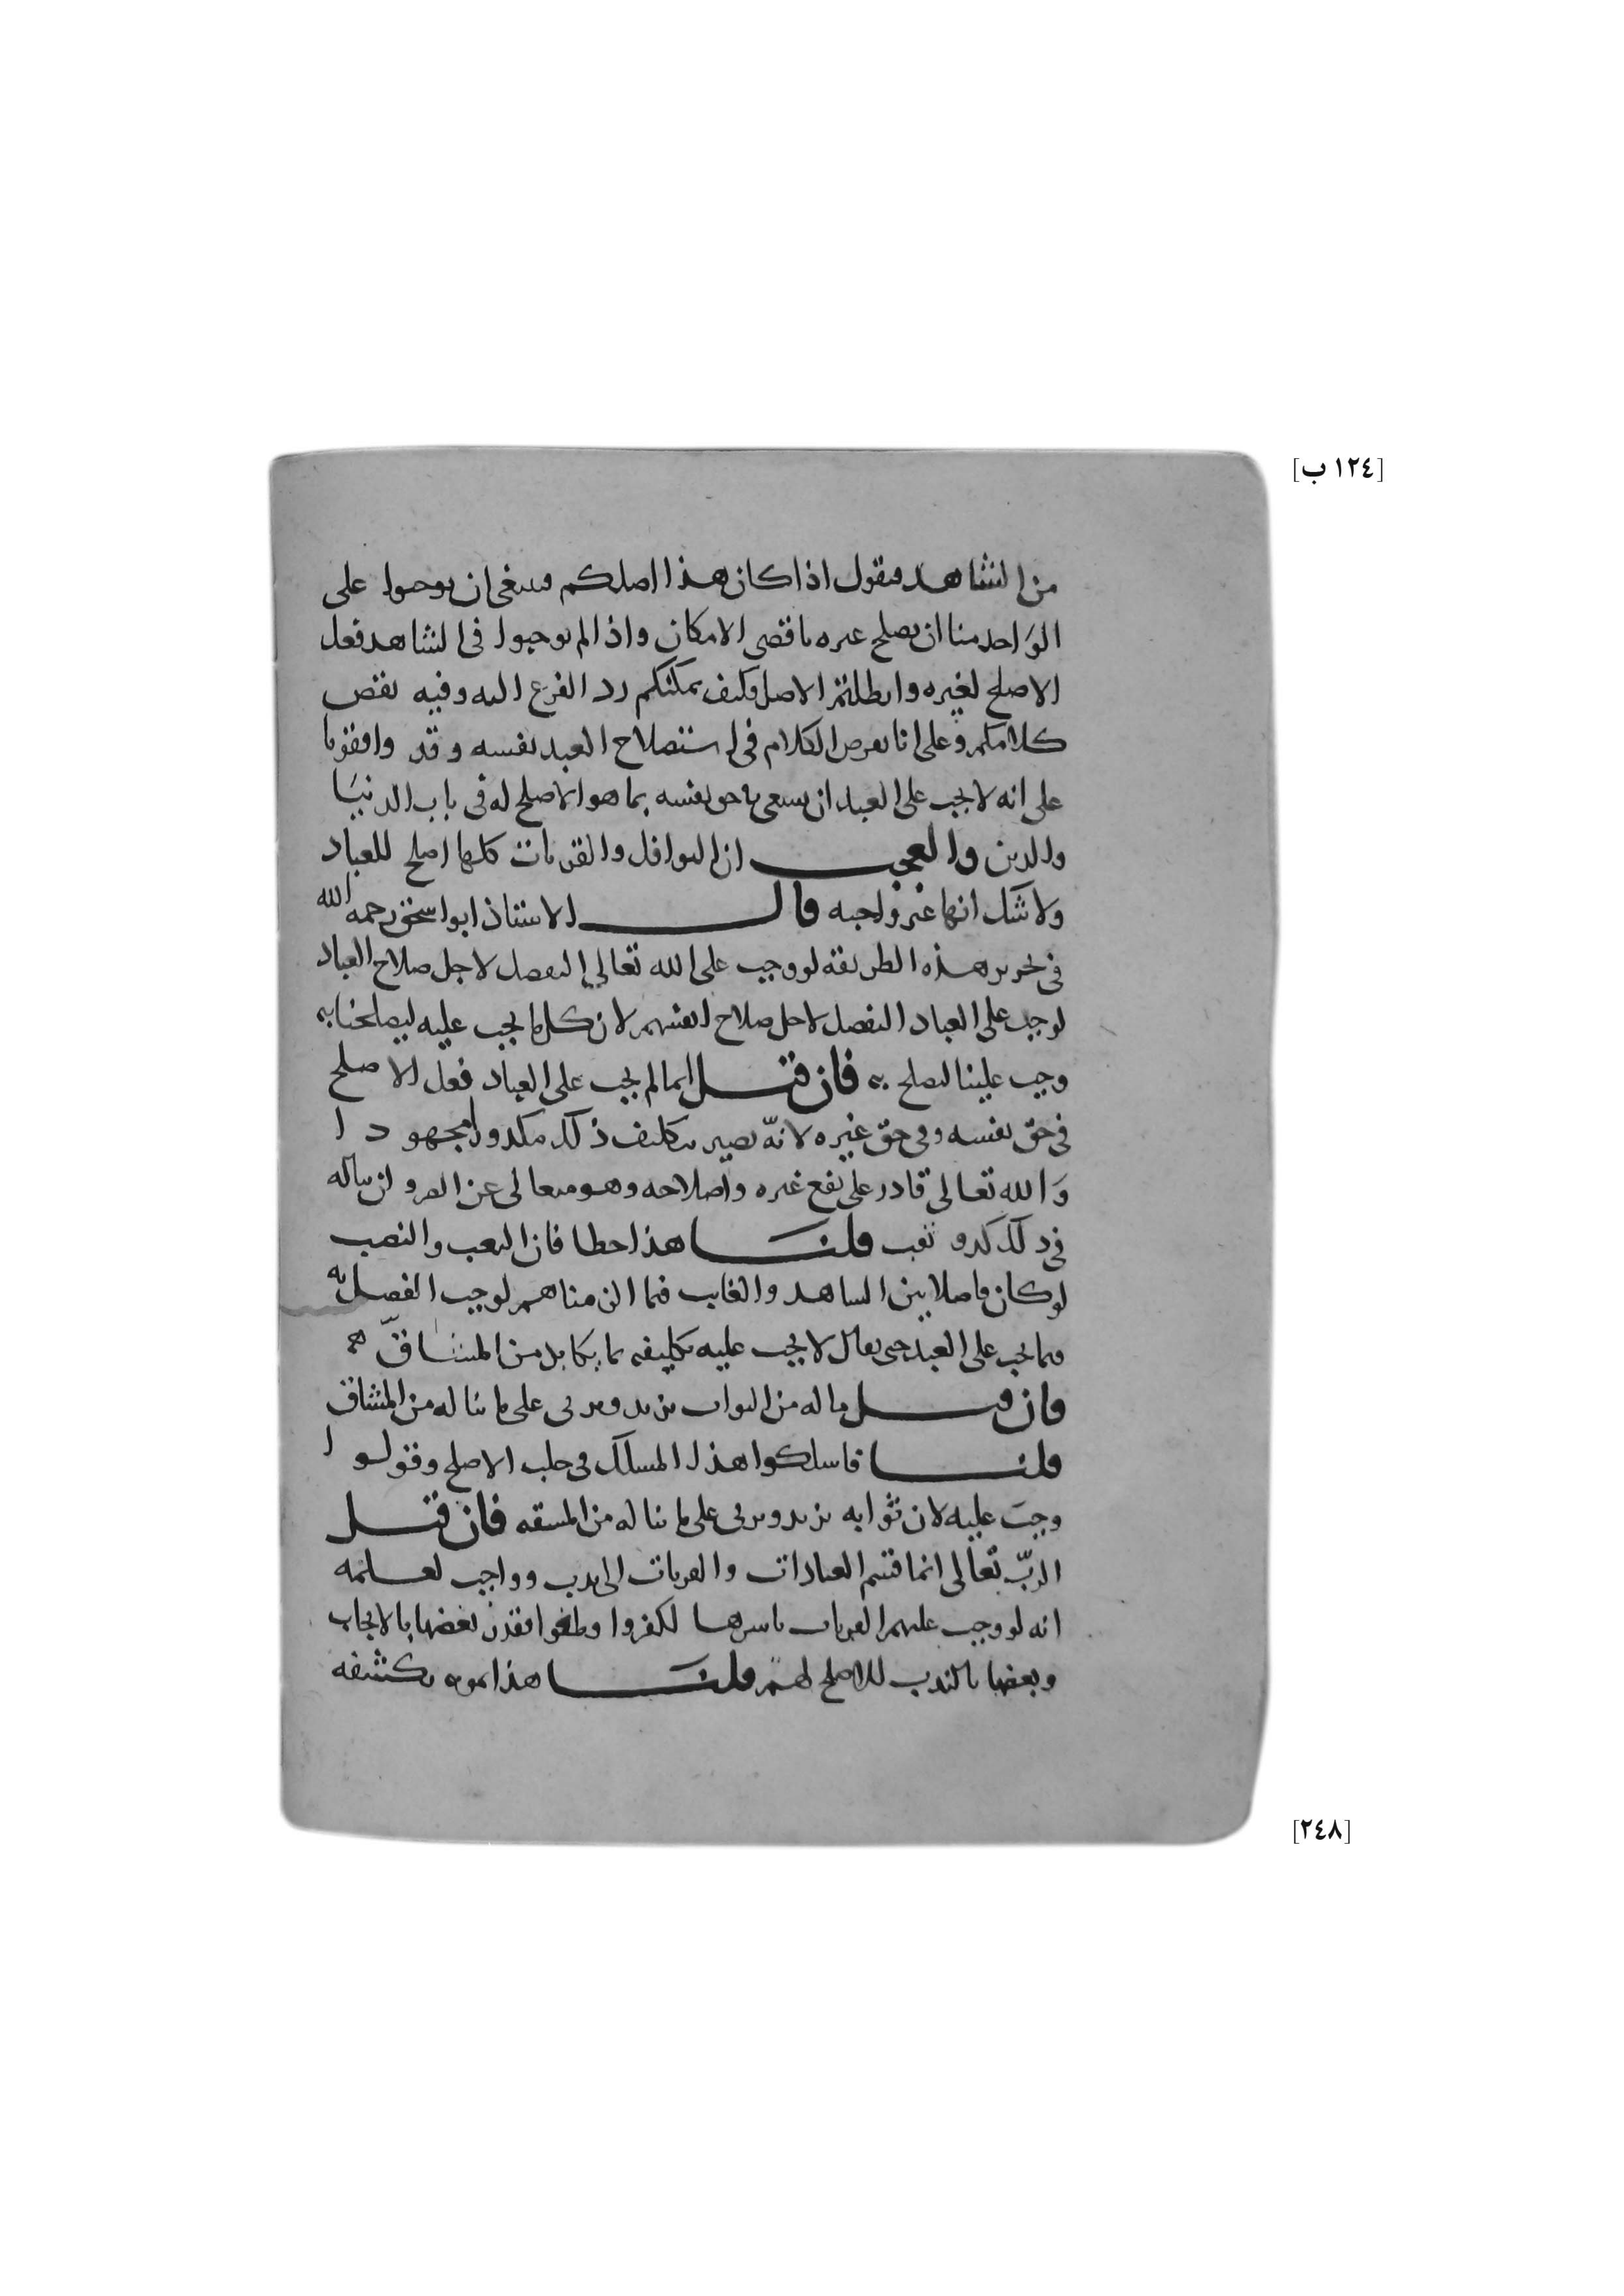 [١٢٤ ب]
من الشاهد فنقول اذا كان هذا اصلكم فينبغي ان توجبوا على
الوَاحد منا ان يصلح غيره باقصى الامكان واذا لم توجبوا فى الشاهد فعل
الاصلح لغيره وابطلتم الاصل فكيف يمكنكم رد الفرع اليه وفيه نقض
كلامكم وعلى انا نعرض الكلام فى استصلاح العبد نفسه وقد وافقونا
على انه لا يجب على العبد ان يسعى فى حق نفسه بما هو الاصلح له فى باب الدنيَا
والدين والعجب ان النوافل والقربات كلها اصلح للعباد
ولا شك انها غير واجبه قال الاستاذ ابو اسحق رحمه الله
فى تحرير هذه الطريقه لو وجب على الله تعالى التفضل لاجل صلاح العباد
لوجب على العباد التفضل لاجل صلاح انفسهم لان كل ما يجب عليه ليصلحنا به
وجب علينا لنصلح به فان قيل انما لم يجب على العباد فعل الاصلح
فى حق نفسه وفى حق غيره لانّه يصير بتكليف ذلك مكدودا مجهودا
وَالله تعالى قادر على نفع غيره واصلاحه وهو متعالى عن الضر وان يناله
فى ذلك كد وتعب قلنَا هذا خطا فان التعب والنصب
لو كان فاصلا بين الشاهد والغايب فيما الزمناهم لوجب الفصل به
فيما يجب على العبد حتى يقال لا يجب عليه تكليفه لما يكابد من المشاقّ
فان قيل ما له من الثواب يزيد ويربى على ما يناله من المشاق
قلنا فاسلكوا هذا المسلك فى جلب الاصلح وقولوا
وجبَ عليه لان ثوابه يزيد ويربى على ما يناله من المشقه فان قيل
الربّ تعالى انما قسم العبادات والقربات الى ندب وواجب لعلمه
انه لو وجب عليهم القربات باسرها لكفروا وطغوا فقدر بعضها بالايجاب
وبعضها بالندب للاصلح لهم قلنَا هذا تمويه بكشفه
[٢٤٨]